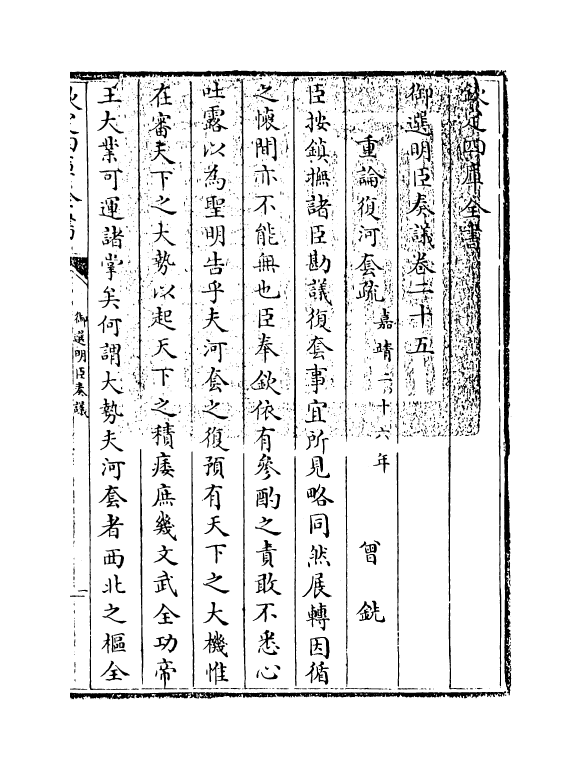 欽定四庫全書
御選明臣奏議卷二十五
重論復河套疏嘉靖二十六年 曾銑
臣按鎮撫諸臣勘議復套事宜所見略同然展轉因循
之懷間亦不能無也臣奉欽依有參酌之責敢不悉心
吐露以為聖明告乎夫河套之復預有天下之大機惟
在審天下之大勢以起天下之積痿庶幾文武全功帝
王大業可運諸掌矣何謂大勢夫河套者西北之樞全
御選明臣奏議